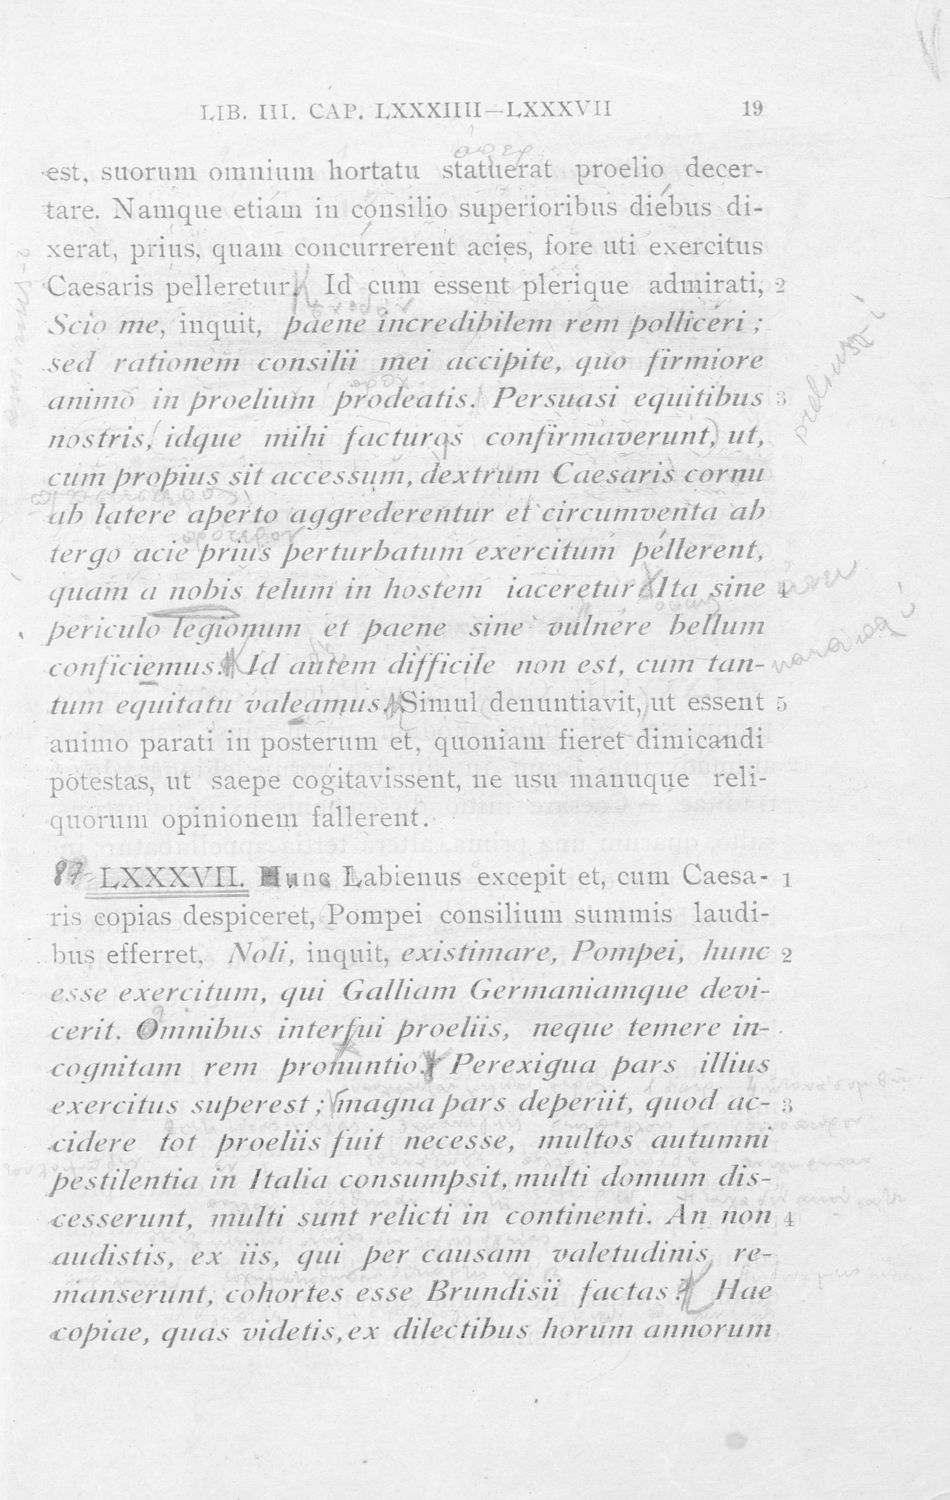 LIB. III. CAP. LXXXIIII—LXXXVII 19
est, suorum omnium hortatu statuerat proelio decer-
tare. Namque etiam in consilio superioribus diebus di-
xerat, prius, quam concurrerent acies, fore uti exercitus
Caesaris pelleretur. Id cum essent plerique admirati, 2
Scio me, inquit, paene incredibilem rem polliceri;
sed rationem consilii mei accipite, quo firmiore
animo in proelium prodeatis. Persuasi equitibus 3
nostris, idque mihi facturos confirmaverunt, ut,
cum propius sit accessum, dextrum Caesaris cornu
ab latere aperto aggrederentur et circumventa ab
tergo acie prius perturbatum exercitum pellerent,
quam a nobis telum in hostem iaceretur. Ita sine 4
periculo legionum et paene sine vulnere bellum
conficiemus. Id autem difficile non est, cum tan-
tum equitatu valeamus. Simul denuntiavit, ut essent 5
animo parati in posterum et, quoniam fieret dimicandi
potestas, ut saepe cogitavissent, ne usu manuque reli-
quorum opinionem fallerent.
87 LXXXVII. Hunc Labienus excepit et, cum Caesa- 1
ris copias despiceret, Pompei consilium summis laudi-
bus efferret, Noli, inquit, existimare, Pompei, hunc 2
esse exercitum, qui Galliam Germaniamque devi-
cerit. Omnibus interfui proeliis, neque temere in-
cognitam rem pronuntio. Perexigua pars illius
exercitus superest; magna pars deperiit, quod ac- 3
cidere tot proeliis fuit necesse, multos autumni
pestilentia in Italia consumpsit, multi domum dis-
cesserunt, multi sunt relicti in continenti. An non 4
audistis, ex iis, qui per causam valetudinis re-
manserunt, cohortes esse Brundisii factas? Hae
copiae, quas videtis, ex dilectibus horum annorum